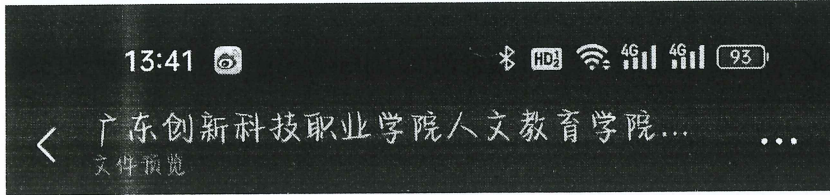 13:41 HD1 2 4G 4G 93
广东创新科技职业学院人文教育学院...
文件预览